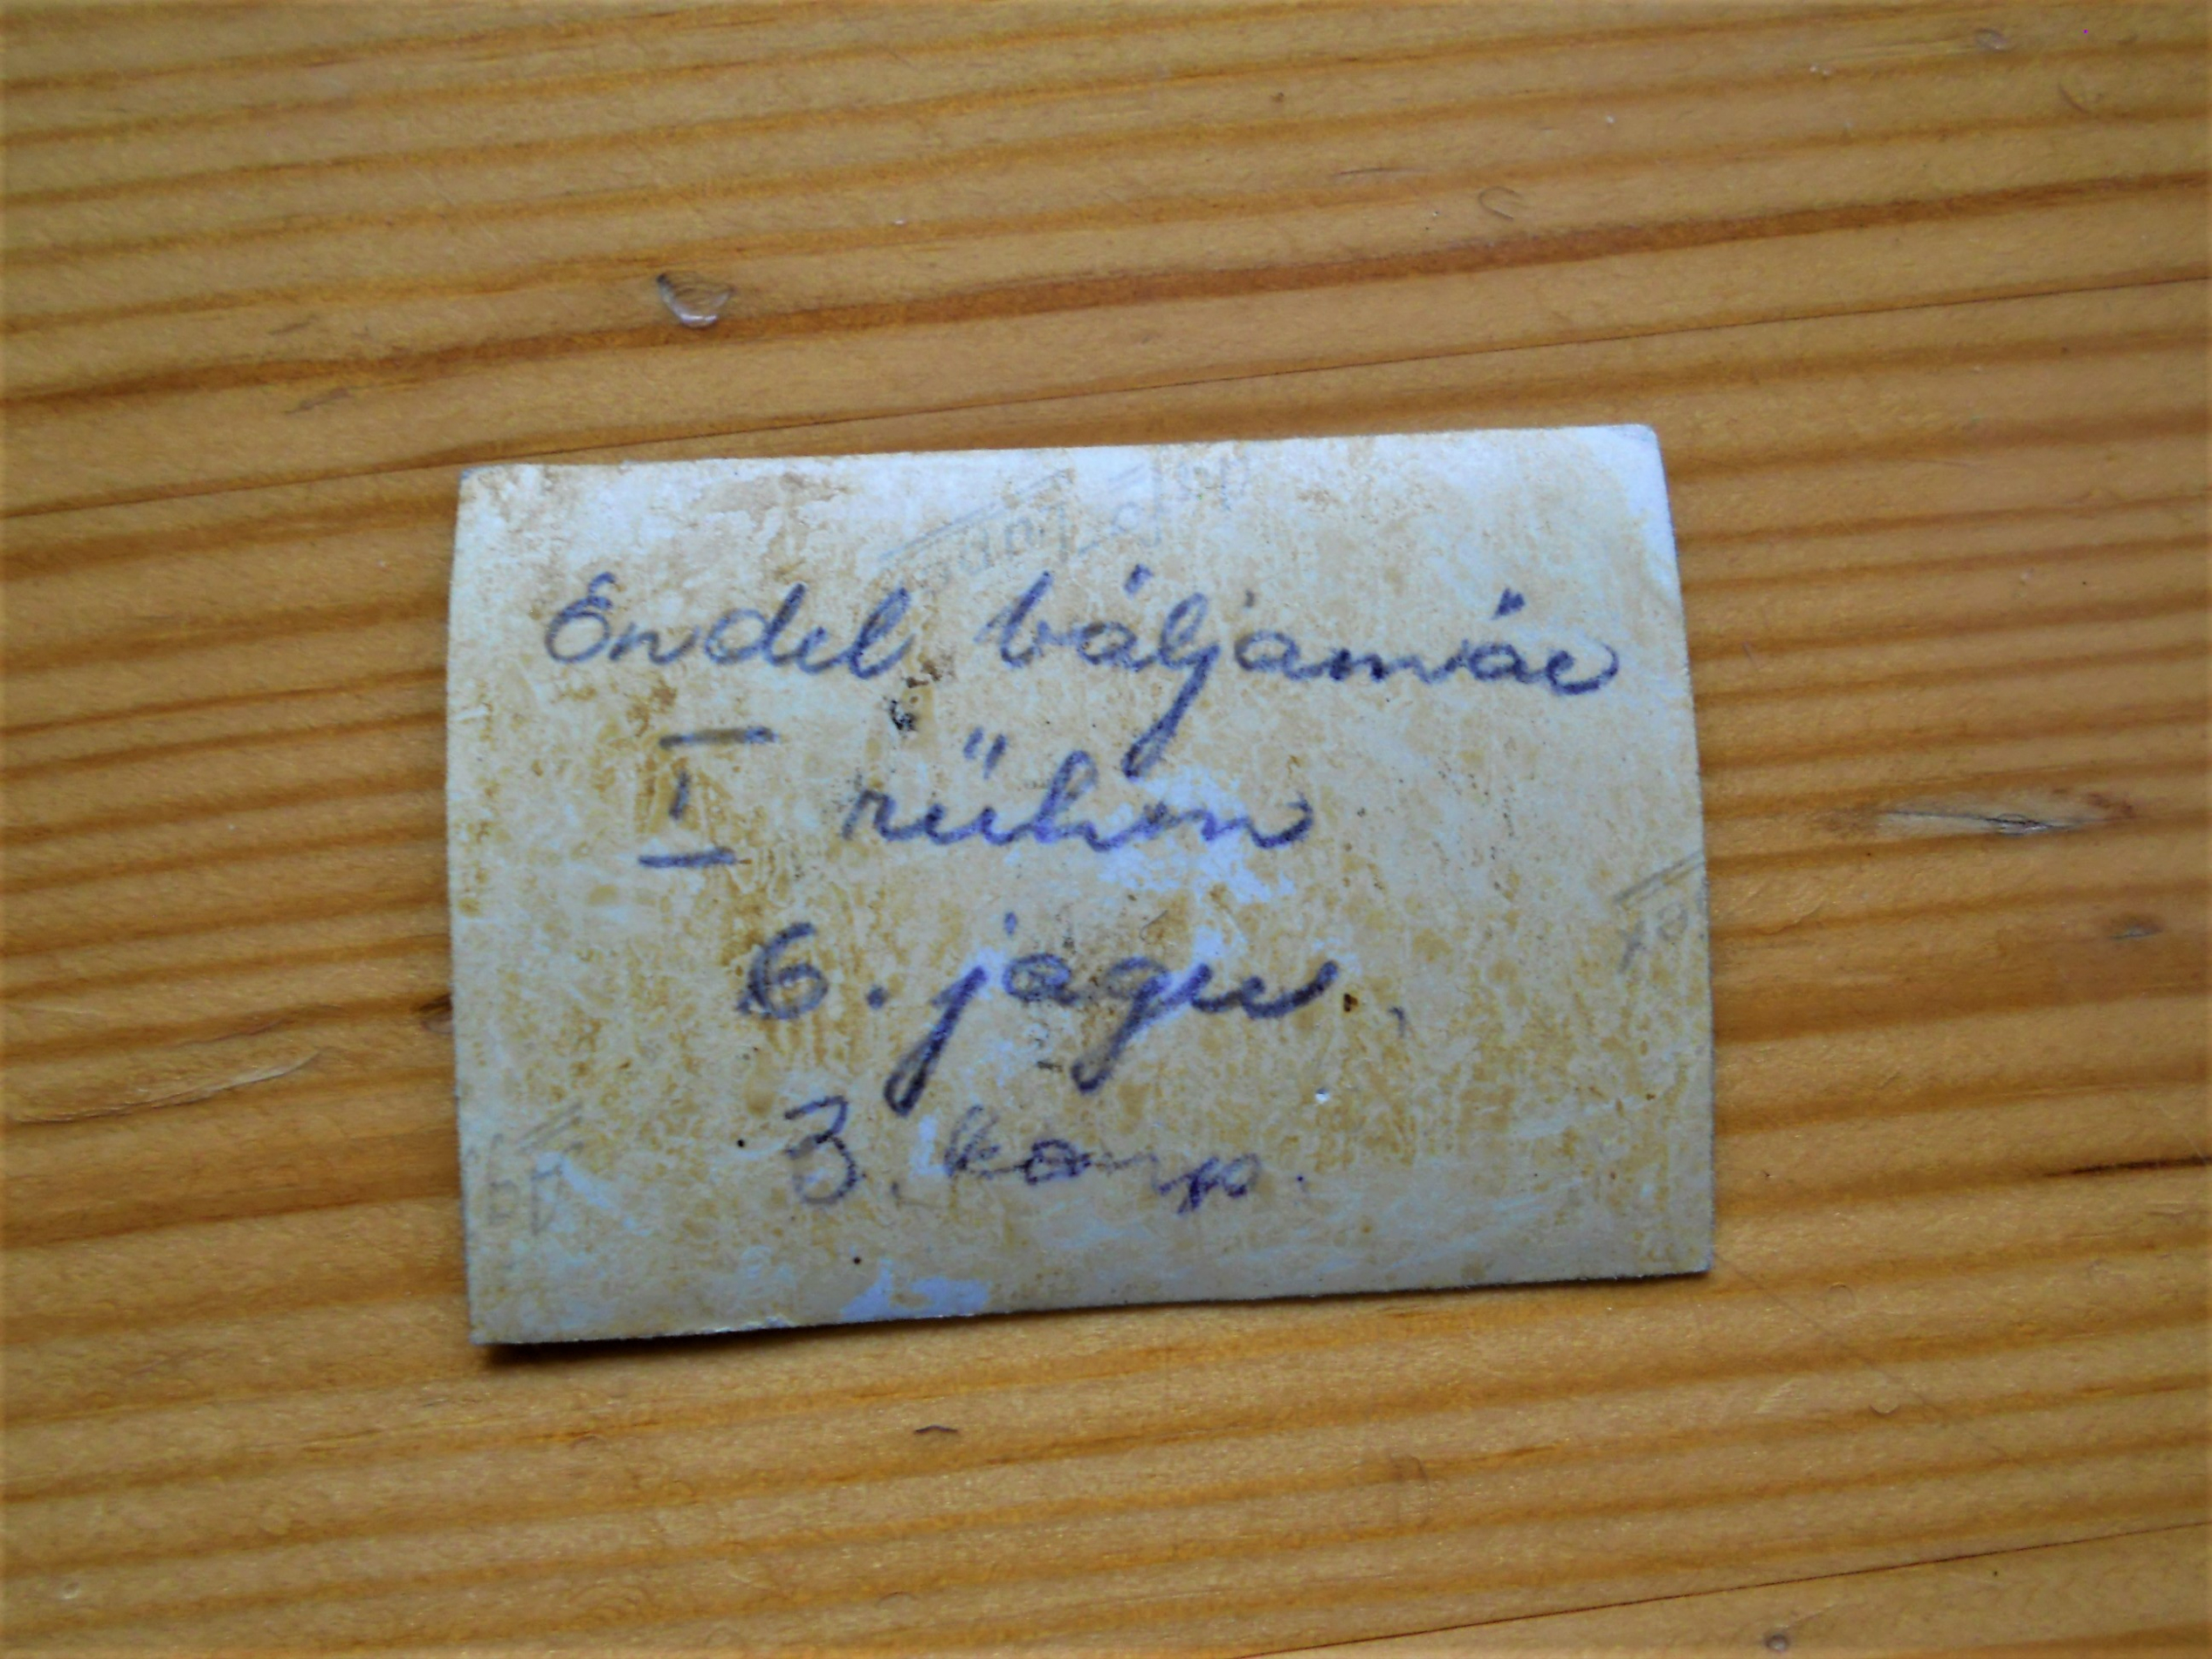 Endel Väljamäe
I rühm
6. jagu.
3. komp.